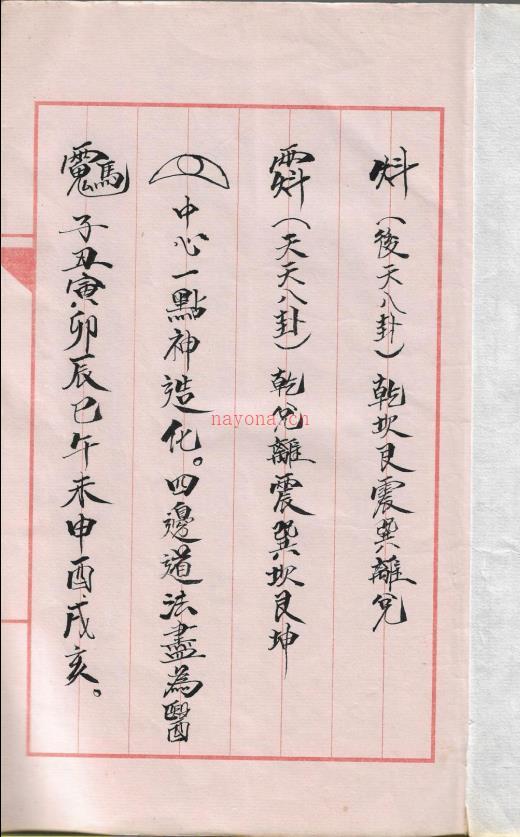 㪵（後天八卦）乾坎艮震巽離兌
（天天八卦）乾兌離震巽坎艮坤
中心一點神造化。四邊道法盡為醫
子丑寅卯辰巳午未申酉戌亥。
nayona.cn